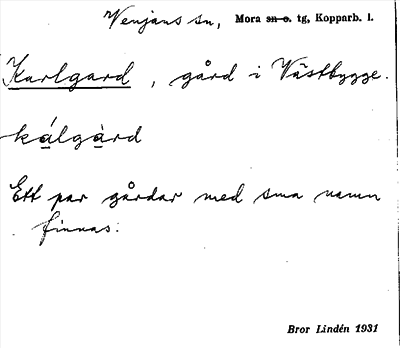 Venjans sn, Mora sn o. tg, Kopparb. l.
Karlgard, gård i Västbygge.
kálgàrd
Ett par gårdar med sma namn
finnas.
Bror Lindén 1931